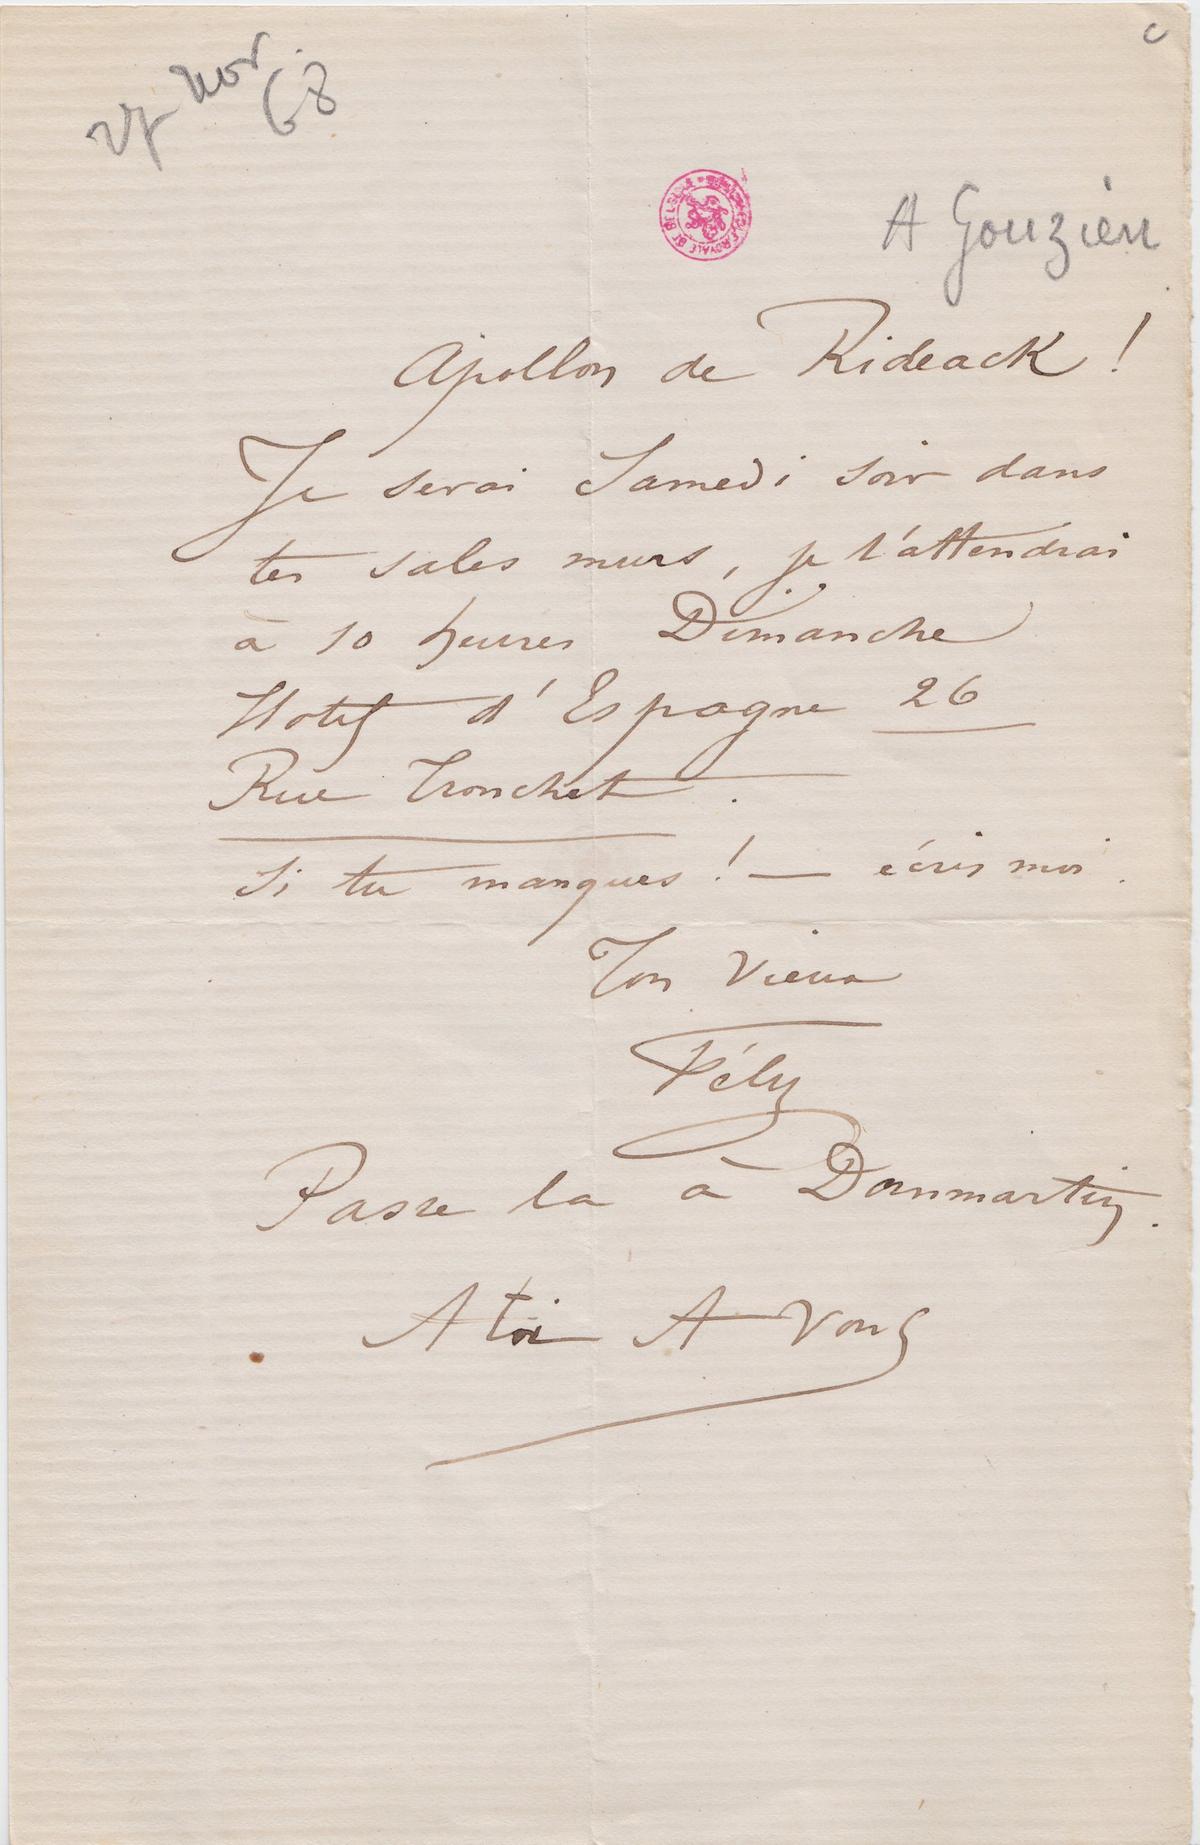 27 nov. 68
A Gouzien
Apollon de Rideack !
Je serai Samedi soir dans
tes sales murs, je t'attendrai
à 10 heures Dimanche
Hotel d'Espagne 26
Rue Tronchet.
Si tu manques ! — écris moi.
Ton vieux
Fély
Passe la à Dommartin.
A toi A vous